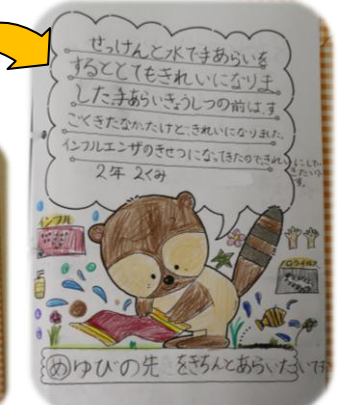 せっけんと水で手あらいを
するととてもきれいになりま
した手あらいきょうしつの前は、す
ごくきたなかったけど、きれいになりました。
インフルエンザのきせつになってきたのできれいにして
いきたいです。
2年 2くみ
インフル
めゆびの先 をきちんとあらいたいです